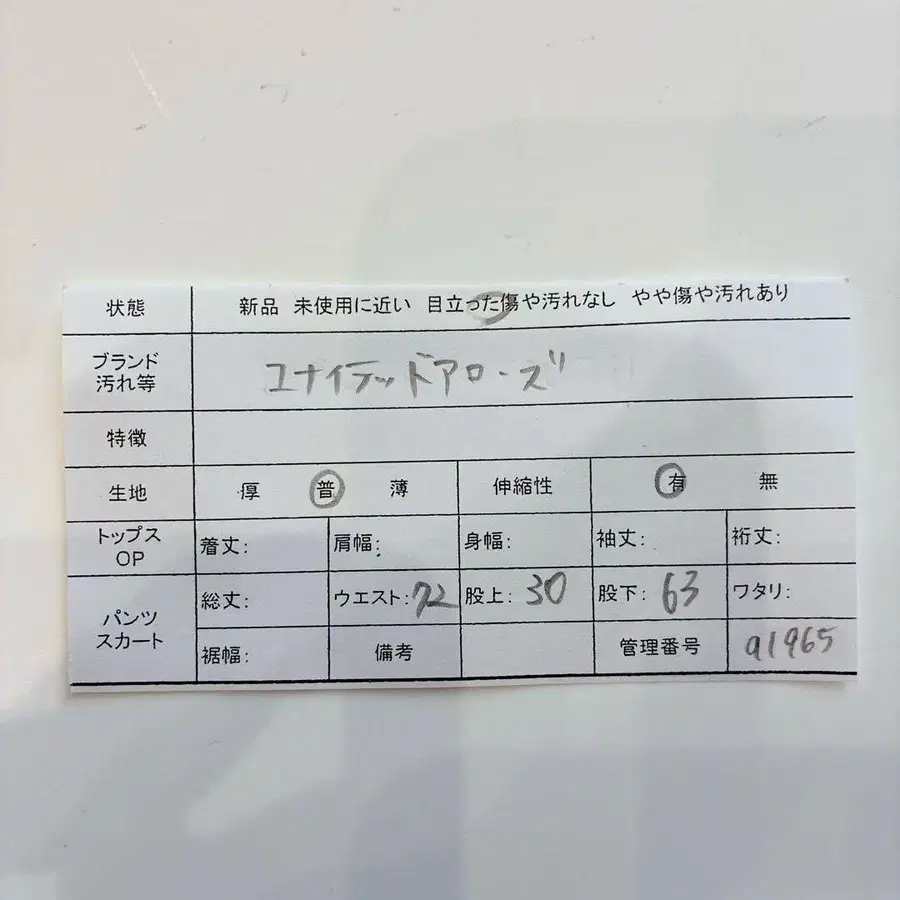 状態 新品 未使用に近い 目立った傷や汚れなし やや傷や汚れあり
ブランド
汚れ等 ユナイテッドアローズ
特徴
生地 厚 普 薄 伸縮性 有 無
トップス
OP 着丈: 肩幅: 身幅: 袖丈: 裄丈:
パンツ
スカート 総丈: ウエスト:72 股上:30 股下:63 ワタリ:
裾幅: 備考 管理番号 91965